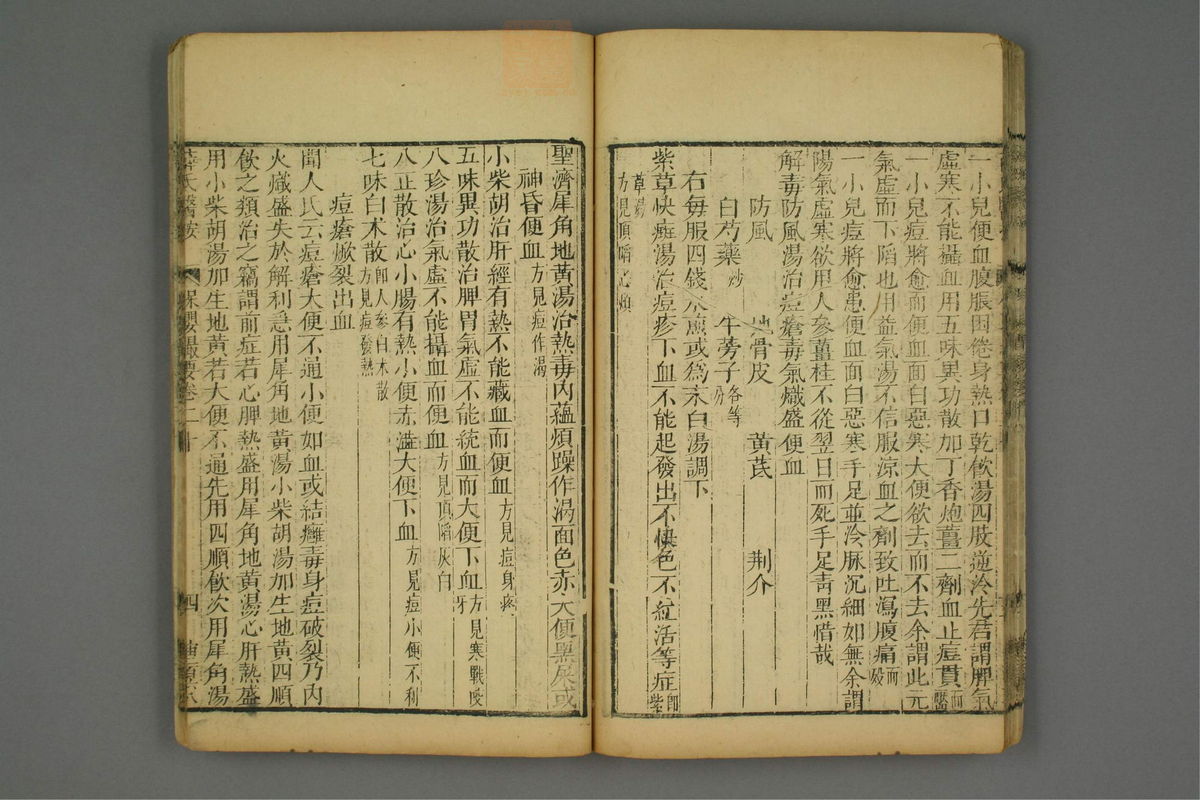 一小兒便血腹脹困倦身熱口乾飲湯四肢逆冷先君謂脾氣
虛寒不能攝血用五味異功散加丁香炮薑二劑血止痘貫而醫
一小兒痘將愈而便血面白惡寒大便欲去而不去余謂此元
氣虛而下陷也用益氣湯不信服涼血之劑致吐瀉腹痛而歿
一小兒痘將愈患便血面白惡寒手足並冷脉沉細如無余謂
陽氣虛寒欲用人參薑桂不從翌日而死手足青黑惜哉
解毒防風湯治痘瘡毒氣熾盛便血
防風 地骨皮 黃芪 荆介
白芍藥炒 牛蒡子各等分
右每服四錢水煎或為末白湯調下
紫草快癍湯治痘疹下血不能起發出不快色不紅活等症即紫
草湯方見頂瞘心煩
聖濟犀角地黃湯治熱毒內蘊煩躁作渴面色赤大便黑屎或
神昏便血方見痘作渴
小柴胡治肝經有熱不能藏血而便血方見痘身疼
五味異功散治脾胃氣虛不能統血而大便下血方見寒戰咬牙
八珍湯治氣虛不能攝血而便血方見頂瞘灰白
八正散治心小腸有熱小便赤澁大便下血方見痘小便不利
七味白术散即人參白术散方見痘發熱
痘瘡揿裂出血
聞人氏云痘瘡大便不通小便如血或結癰毒身痘破裂乃內
火熾盛失於解利急用犀角地黃湯小柴胡湯加生地黃四順
飲之類治之竊謂前症若心脾熱盛用犀角地黃湯心肝熱盛
用小柴胡湯加生地黃若大便不通先用四順飲次用犀角湯
薛氏醫按 保嬰撮要卷二十 四